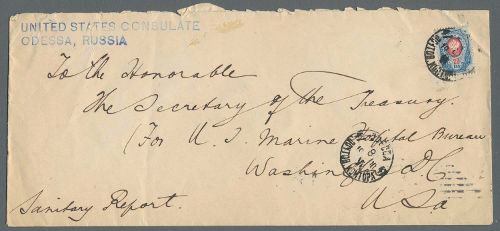 UNITED STATES CONSULATE
ODESSA, RUSSIA
To the Honorable
The Secretary of the Treasury.
(For U. S. Marine Hospital Bureau
Washington D.C.
U.S.a
Sanitary Report.